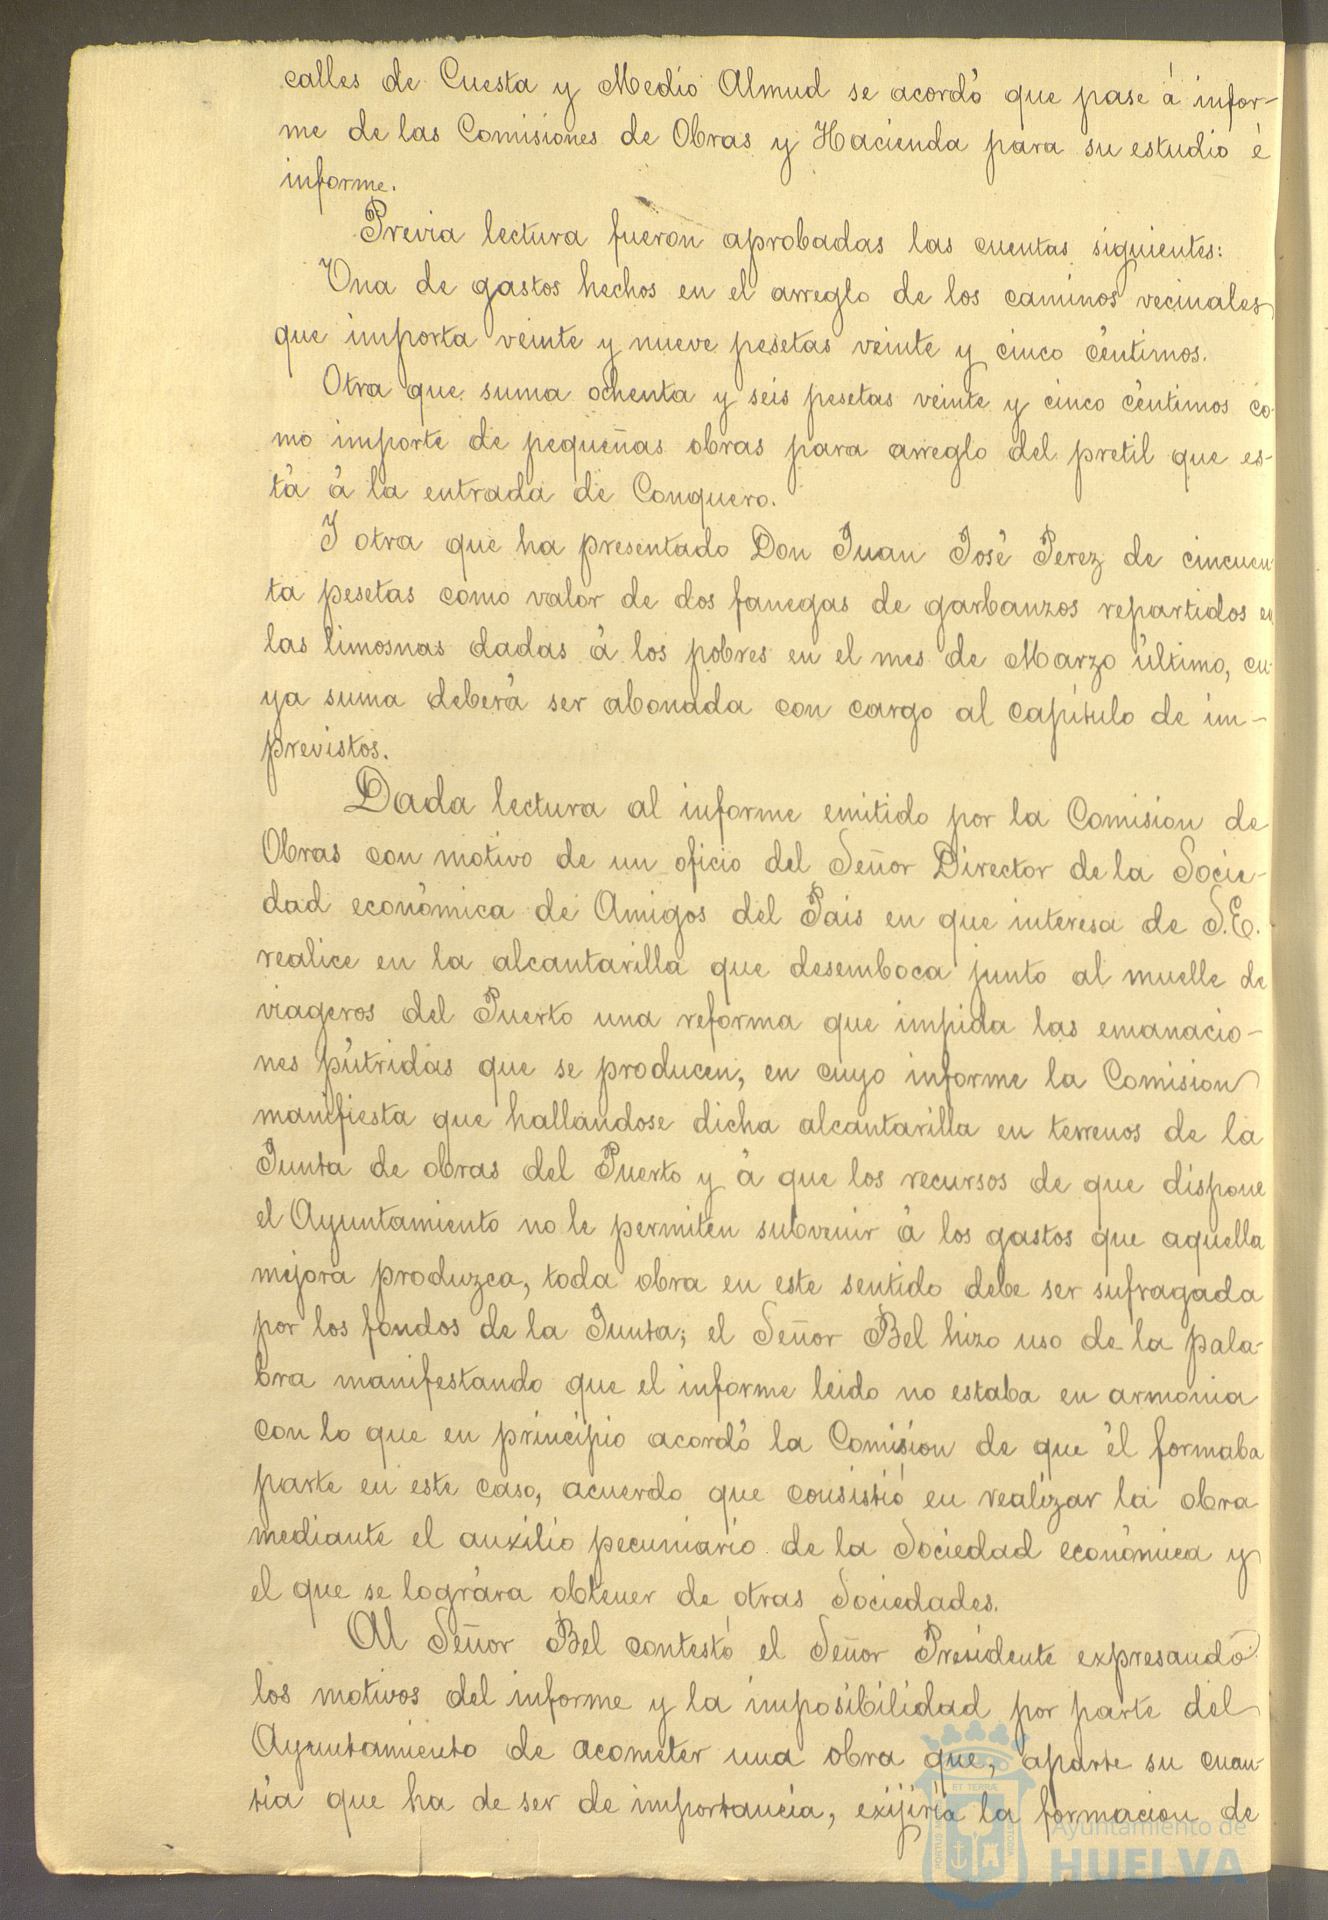 calles de Cuesta y Medio Almud se acordó que pase á infor-
me de las Comisiones de Obras y Hacienda para su estudio é
informe.
Previa lectura fueron aprobadas las cuentas siguientes:
Una de gastos hechos en el arreglo de los caminos vecinales
que importa veinte y nueve pesetas veinte y cinco céntimos.
Otra que suma ochenta y seis pesetas veinte y cinco céntimos co-
mo importe de pequeñas obras para arreglo del pretil que es-
tá á la entrada de Conquero.
Y otra que ha presentado Don Juan José Perez de cincuen
ta pesetas como valor de dos fanegas de garbanzos repartidos en
las limosnas dadas á los pobres en el mes de Marzo último, cu-
ya suma deberá ser abonada con cargo al capítulo de im-
previstos.
Dada lectura al informe emitido por la Comision de
Obras con motivo de un oficio del Señor Director de la Socie-
dad económica de Amigos del Pais en que interesa de S.E.
realice en la alcantarilla que desemboca junto al muelle de
viageros del Puerto una reforma que impida las emanacio-
nes pútridas que se producen, en cuyo informe la Comision
manifiesta que hallandose dicha alcantarilla en terrenos de la
Junta de obras del Puerto y á que los recursos de que dispone
el Ayuntamiento no le permiten subvenir á los gastos que aquella
mejora produzca, toda obra en este sentido debe ser sufragada
por los fondos de la Junta; el Señor Bel hizo uso de la pala-
bra manifestando que el informe leido no estaba en armonia
con lo que en principio acordó la Comisión de que él formaba
parte en este caso, acuerdo que consistió en realizar la obra
mediante el auxilio pecuniario de la Sociedad económica y
el que se lográra obtener de otras Sociedades.
Al Señor Bel contestó el Señor Presidente expresando
los motivos del informe y la imposibilidad por parte del
Ayuntamiento de acometer una obra que, aparte su cuan-
tía que ha de ser de importancia, exijiría la formacion de
Ayuntamiento de
HUELVA